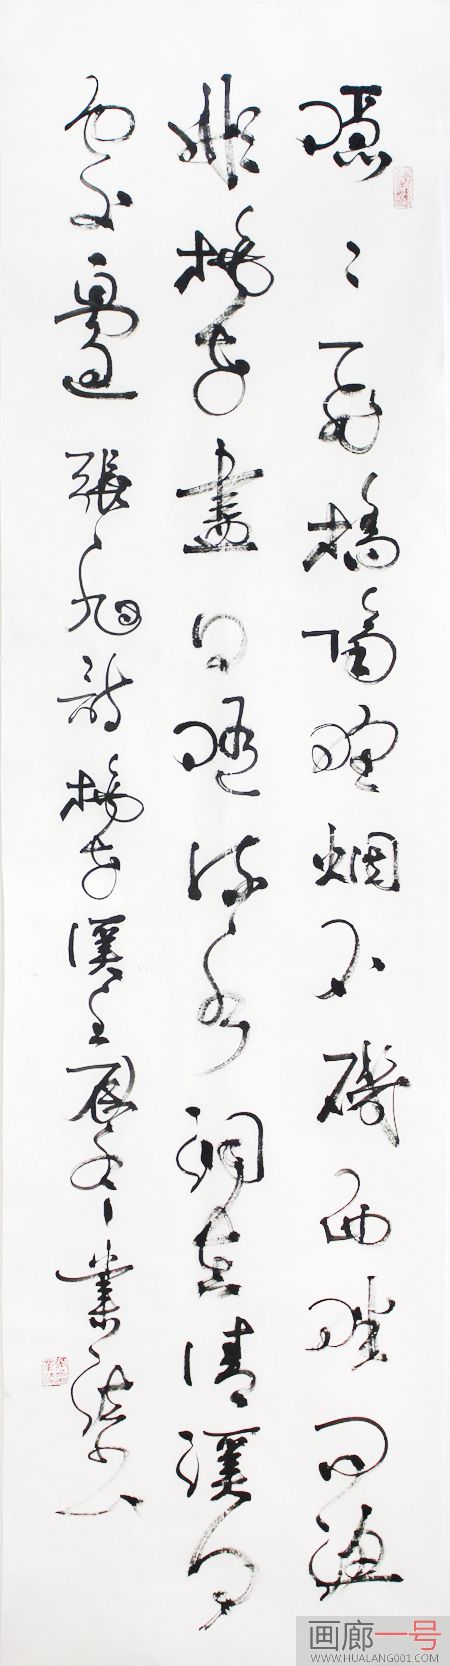 隱〻飛橋隔野烟石磯西畔問漁
船桃花盡日隨流水洞在清溪何
處邊 張旭詩桃花溪壬辰冬業
画廊一号
WWW.HUALANG001.COM